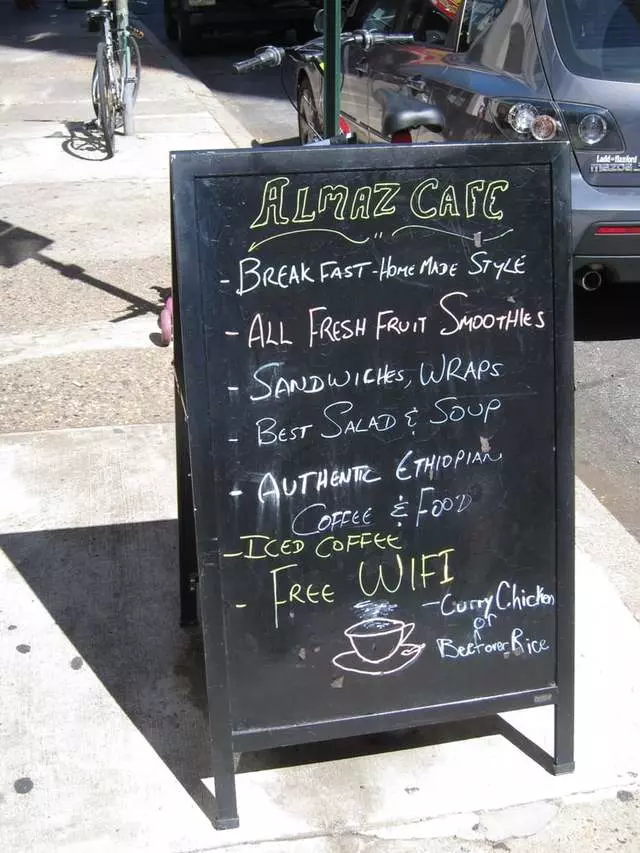 ALMAZ CAFE
- BREAKFAST-HOME MADE STYLE
- ALL FRESH FRUIT SMOOTHIES
- SANDWICHES, WRAPS
- BEST SALAD & SOUP
- AUTHENTIC ETHIOPIAN
COFFEE & FOOD
- ICED COFFEE
- FREE WIFI
- Curry Chicken
or
Beef over Rice
Ladd-Hanford
mazda